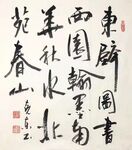 東壁圖書
西園翰墨南
華秋水北
苑春山